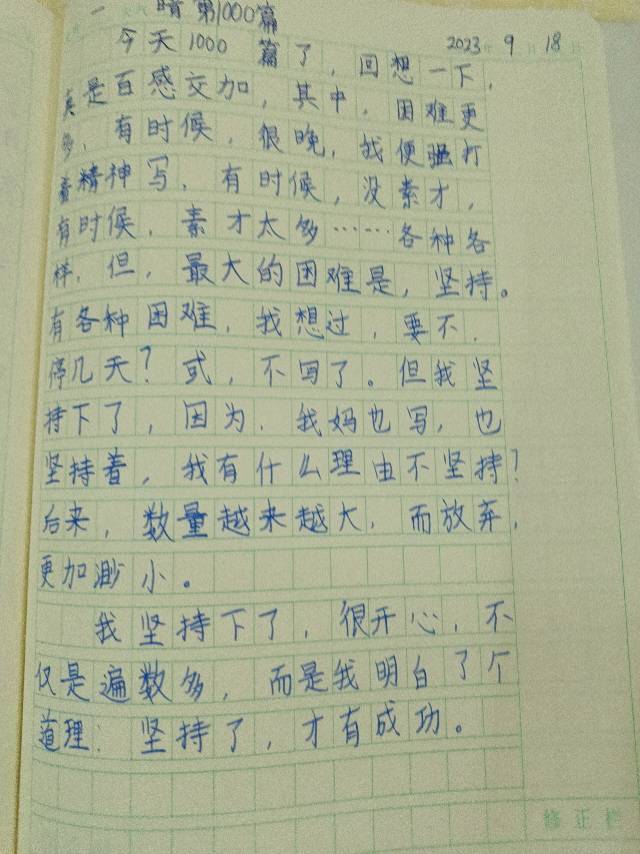 一 晴 第1000篇
2023年9月18日
今天1000篇了，回想一下，
真是百感交加，其中，困难更
多，有时候，很晚，我便强打
着精神写，有时候，没素才，
有时候，素才太多……各种各
样，但，最大的困难是，坚持。
有各种困难，我想过，要不，
停几天？或，不写了。但我坚
持下了，因为，我妈也写，也
坚持着，我有什么理由不坚持？
后来，数量越来越大，而放弃，
更加渺小。
我坚持下了，很开心，不
仅是遍数多，而是我明白了个
道理：坚持了，才有成功。
修正栏